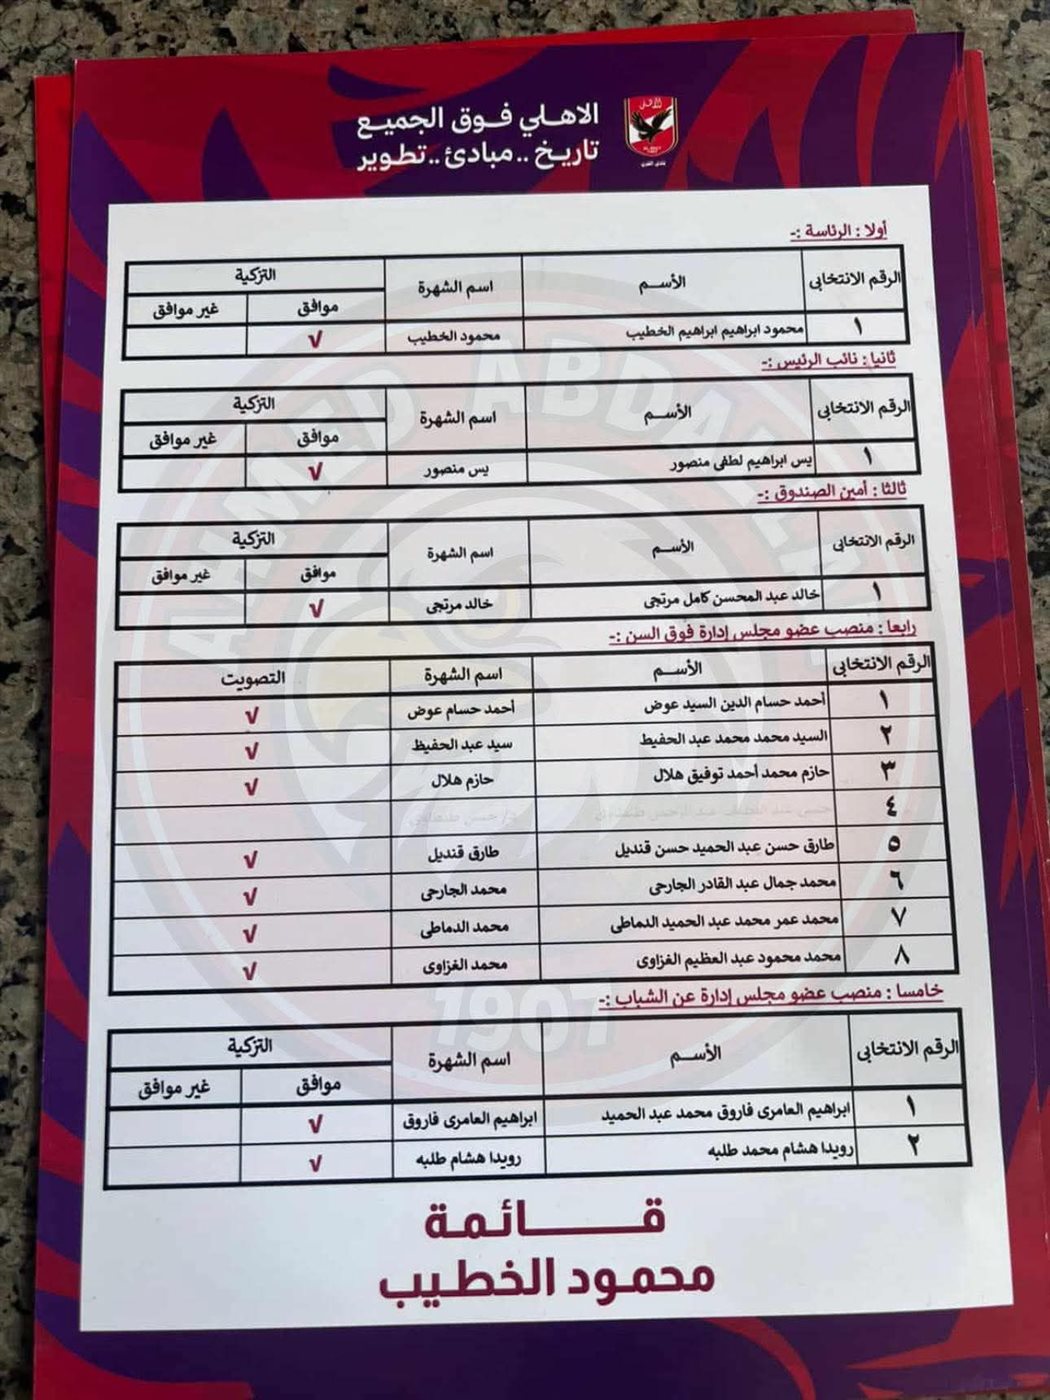 الاهلي فوق الجميع
تاريخ .. مبادئ .. تطوير
أولا : الرئاسة :-
الرقم الانتخابى الأسم اسم الشهرة التزكية
موافق غير موافق
١ محمود ابراهيم ابراهيم الخطيب محمود الخطيب √
ثانيا : نائب الرئيس :-
الرقم الانتخابى الأسم اسم الشهرة التزكية
موافق غير موافق
١ يس ابراهيم لطفى منصور يس منصور √
ثالثا : أمين الصندوق :-
الرقم الانتخابى الأسم اسم الشهرة التزكية
موافق غير موافق
١ خالد عبد المحسن كامل مرتجى خالد مرتجى √
رابعا : منصب عضو مجلس إدارة فوق السن :-
الرقم الانتخابى الأسم اسم الشهرة التصويت
١ أحمد حسام الدين السيد عوض أحمد حسام عوض √
٢ السيد محمد محمد عبد الحفيظ سيد عبد الحفيظ √
٣ حازم محمد أحمد توفيق هلال حازم هلال √
٤
٥ طارق حسن عبد الحميد حسن قنديل طارق قنديل √
٦ محمد جمال عبد القادر الجارحى محمد الجارحى √
٧ محمد عمر محمد عبد الحميد الدماطى محمد الدماطى √
٨ محمد محمود عبد العظيم الغزاوى محمد الغزاوى √
خامسا : منصب عضو مجلس إدارة عن الشباب :-
الرقم الانتخابى الأسم اسم الشهرة التزكية
موافق غير موافق
١ ابراهيم العامرى فاروق محمد عبد الحميد ابراهيم العامرى فاروق √
٢ رويدا هشام محمد طلبه رويدا هشام طلبه √
قائمة
محمود الخطيب
AHMED ABDALLAH
1907